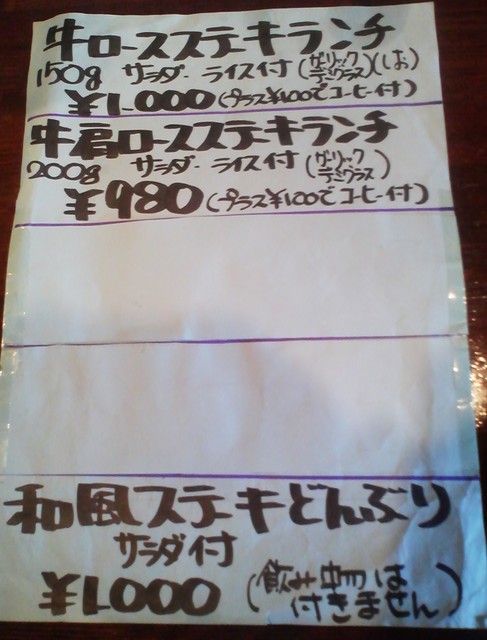 牛ロースステーキランチ
150g サラダ・ライス付(ガーリック デミグラス)(しお)
¥1,000(プラス¥100でコーヒー付)
牛肩ロースステーキランチ
200g サラダ・ライス付(ガーリック デミグラス)
¥980(プラス¥100でコーヒー付)
和風ステーキどんぶり
サラダ付
¥1,000(飲み物は 付きません)